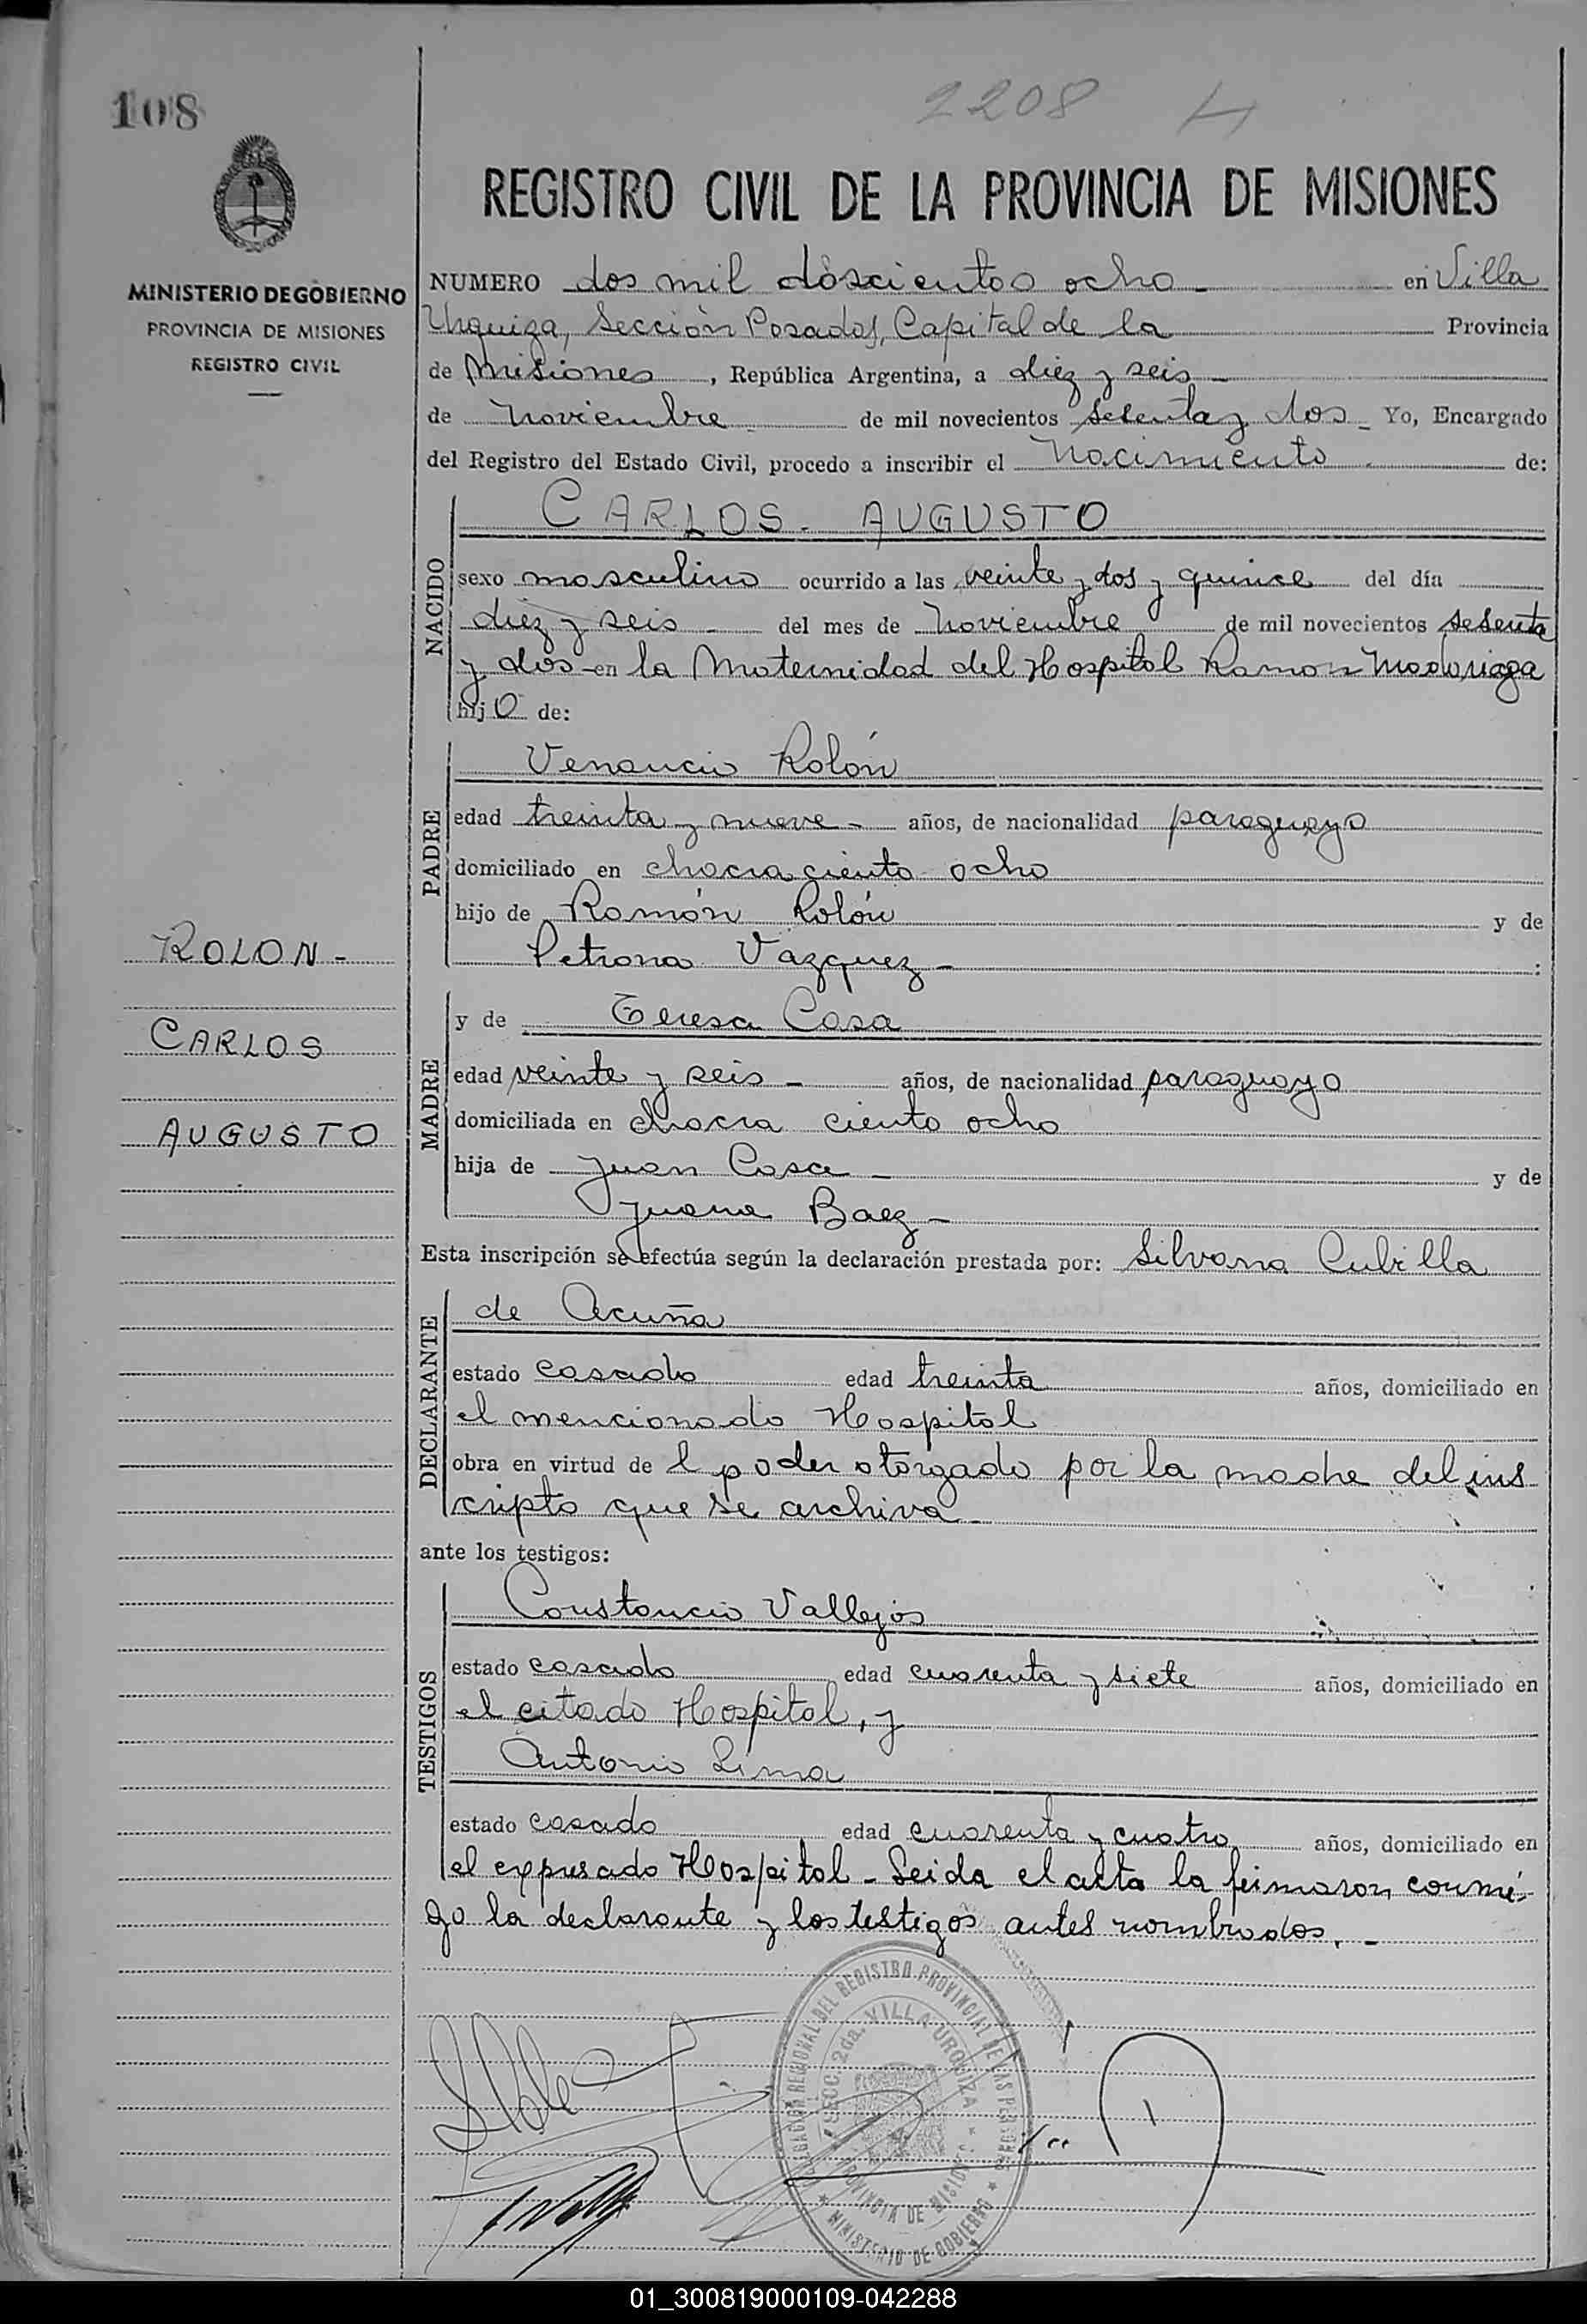 108
2208
REGISTRO CIVIL DE LA PROVINCIA DE MISIONES
MINISTERIO DE GOBIERNO
PROVINCIA DE MISIONES
REGISTRO CIVIL
NUMERO dos mil doscientos ocho - en Villa
Urquiza, Sección Posadas, Capital de la Provincia
de Misiones, República Argentina, a diez y seis -
de Noviembre de mil novecientos sesenta y dos - Yo, Encargado
del Registro del Estado Civil, procedo a inscribir el Nacimiento de:
NACIDO
CARLOS - AUGUSTO
sexo masculino ocurrido a las veinte y dos y quince del día
diez y seis - del mes de Noviembre de mil novecientos sesenta
y dos - en la Maternidad del Hospital Ramon Madariaga
hijo de:
PADRE
Venancio Rolón
edad treinta y nueve - años, de nacionalidad paraguayo
domiciliado en chacra ciento ocho
hijo de Ramón Rolón y de
Petrona Vazquez - :
ROLON -
CARLOS
AUGUSTO
MADRE
y de Teresa Casa
edad veinte y seis - años, de nacionalidad paraguaya
domiciliada en chacra ciento ocho
hija de Juan Casa - y de
Juana Baez -
Esta inscripción se efectúa según la declaración prestada por: Silvana Cubilla
DECLARANTE
de Acuña
estado casada edad treinta años, domiciliado en
el mencionado Hospital
obra en virtud de l poder otorgado por la madre del ins
cripto que se archiva -
ante los testigos:
TESTIGOS
Constancio Vallejos
estado casado edad cuarenta y siete años, domiciliado en
el citado Hospital, y
Antonio Lima
estado casado edad cuarenta y cuatro años, domiciliado en
el expresado Hospital - Leida el acta la firmaron conmi-
go la declarante y los testigos antes nombrados. -
DELEGACION REGIONAL DEL REGISTRO PROVINCIAL DE LAS PERSONAS
SECC. 2da. VILLA URQUIZA
PROVINCIA DE MISIONES
MINISTERIO DE GOBIERNO
01_300819000109-042288